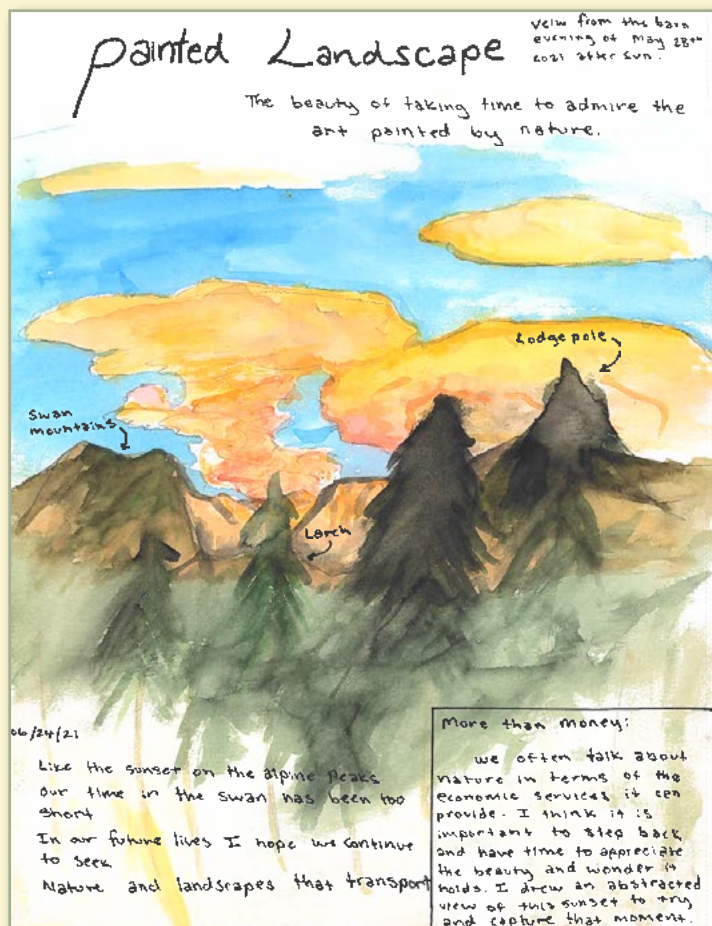 Painted Landscape
Veiw from the barn
evening of May 28th
2021 after sun.
The beauty of taking time to admire the
art painted by nature.
Lodgepole
Swan
mountains
Larch
06/24/21
Like the sunset on the alpine peaks
our time in the swan has been too
short
In our future lives I hope we continue
to seek
Nature and landscapes that transport
More than money:
we often talk about
nature in terms of the
economic services it can
provide. I think it is
important to step back
and have time to appreciate
the beauty and wonder it
holds. I drew an abstracted
view of this sunset to try
and capture that moment.